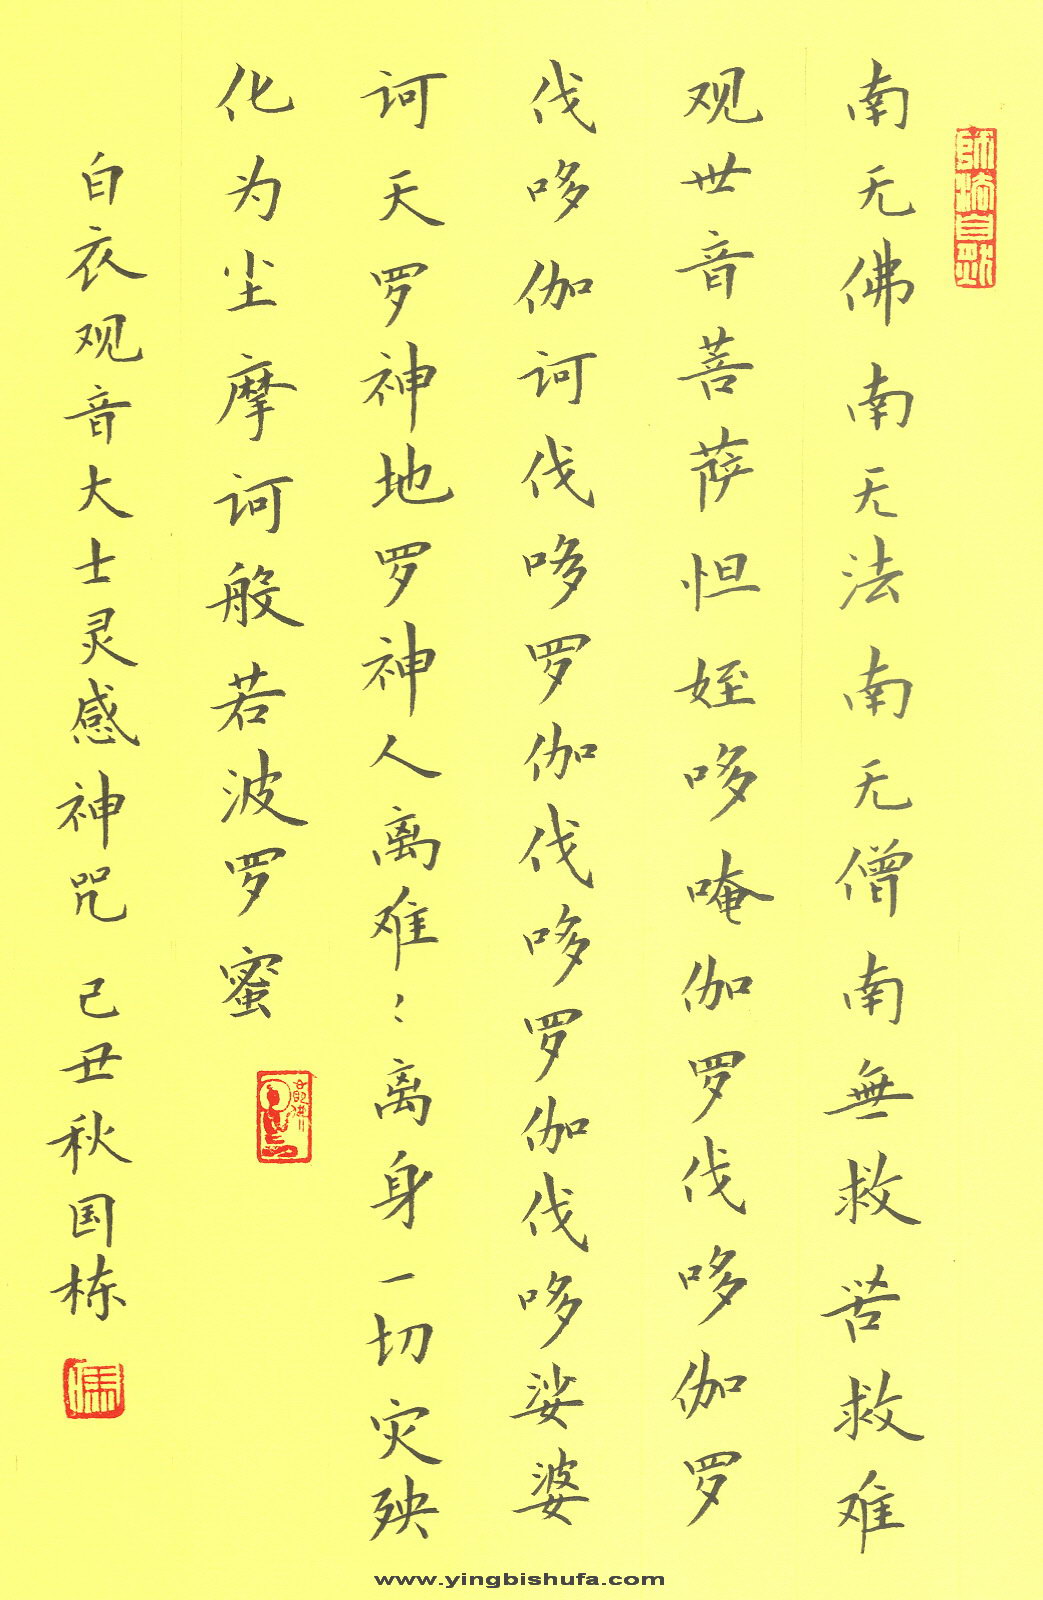 南无佛南无法南无僧南無救苦救难
观世音菩萨怛姪哆唵伽罗伐哆伽罗
伐哆伽诃伐哆罗伽伐哆罗伽伐哆娑婆
诃天罗神地罗神人离难〻离身一切灾殃
化为尘摩诃般若波罗蜜
白衣观音大士灵感神咒 己丑秋国栋
www.yingbishufa.com